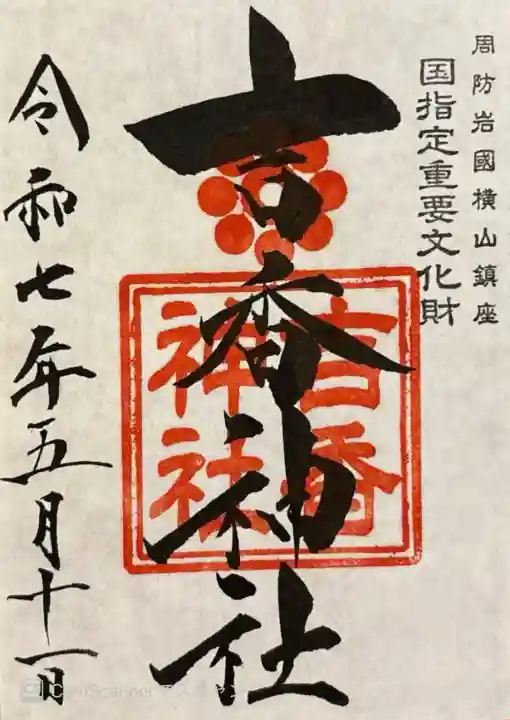 周防岩國横山鎮座
国指定重要文化財
吉香神社
吉香
神社
令和七年五月十一日
CamScanner でスキャン